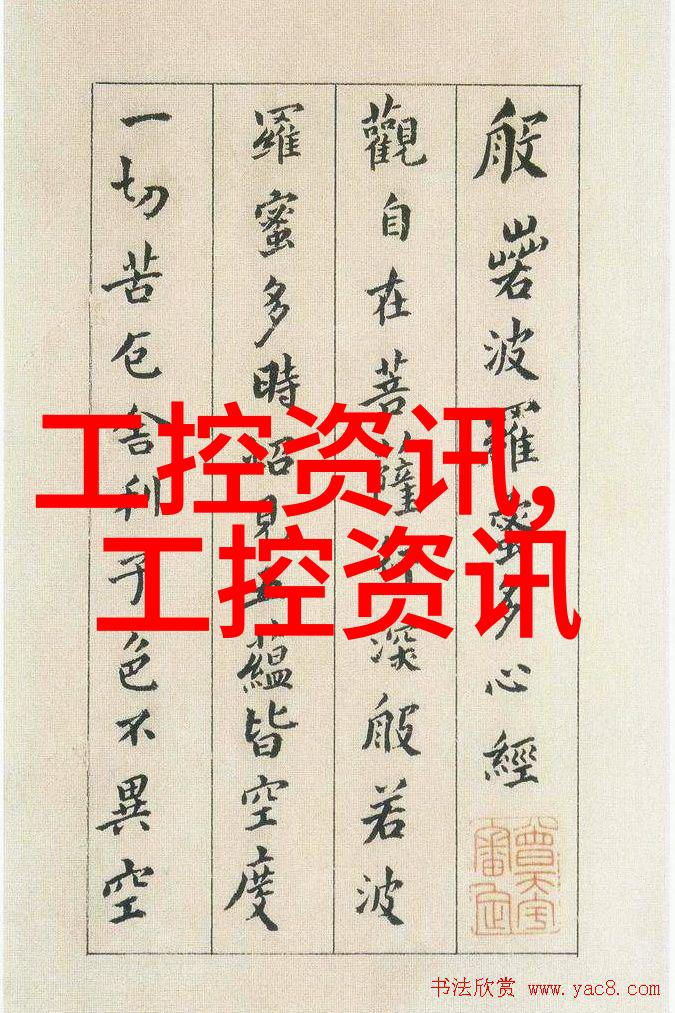 般若波羅蜜多心經
觀自在菩薩行深般若波
羅蜜多時照見五蘊皆空度
一切苦厄舍利子色不異空
工控资讯,
工控资讯
书法欣赏 www.yac8.com